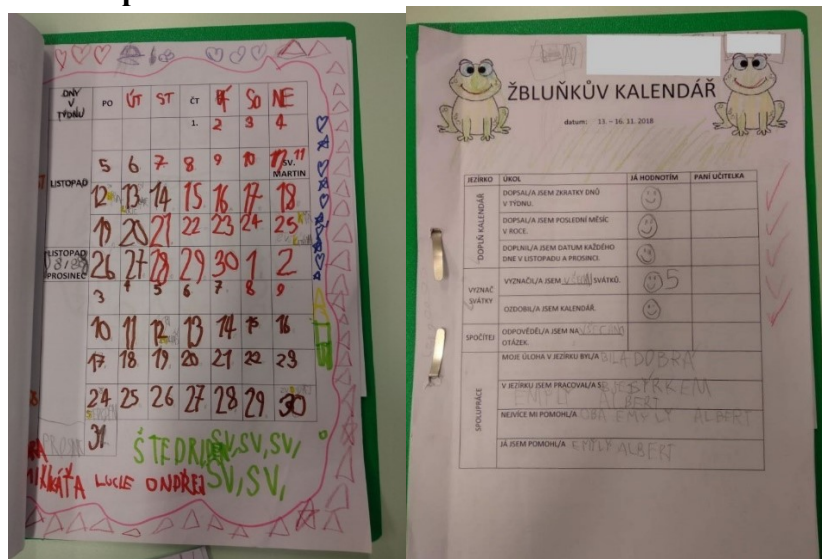 DNY V TÝDNU PO ÚT ST ČT SO NE
1. 2 3 4
5 6 7 8 9 10 11
SV. MARTIN
LISTOPAD 12 13 14 15 16 17 18
19 20 21 22 23 24 25
LISTOPAD PROSINEC 26 27 28 29 30 1 2
3 4 5 6 7 8 9
10 11 12 13 14 15 16
17 18 19 20 21 22 23
24 25 26 27 28 29 30
31
ŠTEDRI SV, SV, SV,
KÁŤA LUCIE ONDŘEJ SV, SV,
ŽBLUŇKŮV KALENDÁŘ
datum: 13. – 16. 11. 2018
JEZÍRKO ÚKOL JÁ HODNOTÍM PANÍ UČITELKA
DOPLŇ KALENDÁŘ
DOPSAL/A JSEM ZKRATKY DNŮ
V TÝDNU.
DOPSAL/A JSEM POSLEDNÍ MĚSÍC
V ROCE.
DOPLNIL/A JSEM DATUM KAŽDÉHO
DNE V LISTOPADU A PROSINCI.
VYZNAČ SVÁTKY
VYZNAČIL/A JSEM SVÁTKŮ. 5
OZDOBIL/A JSEM KALENDÁŘ.
SPOČÍTEJ
ODPOVĚDĚL/A JSEM NA VŠECHNO
OTÁZEK.
SPOLUPRÁCE
MOJE ÚLOHA V JEZÍRKU BYLA/ BILA DOBRÁ
V JEZÍRKU JSEM PRACOVAL/A S
EMILY ALBERT
NEJVÍCE MI POMOHL/A OBA EMYLY ALBERT
JÁ JSEM POMOHL/A EMILY ALBERT